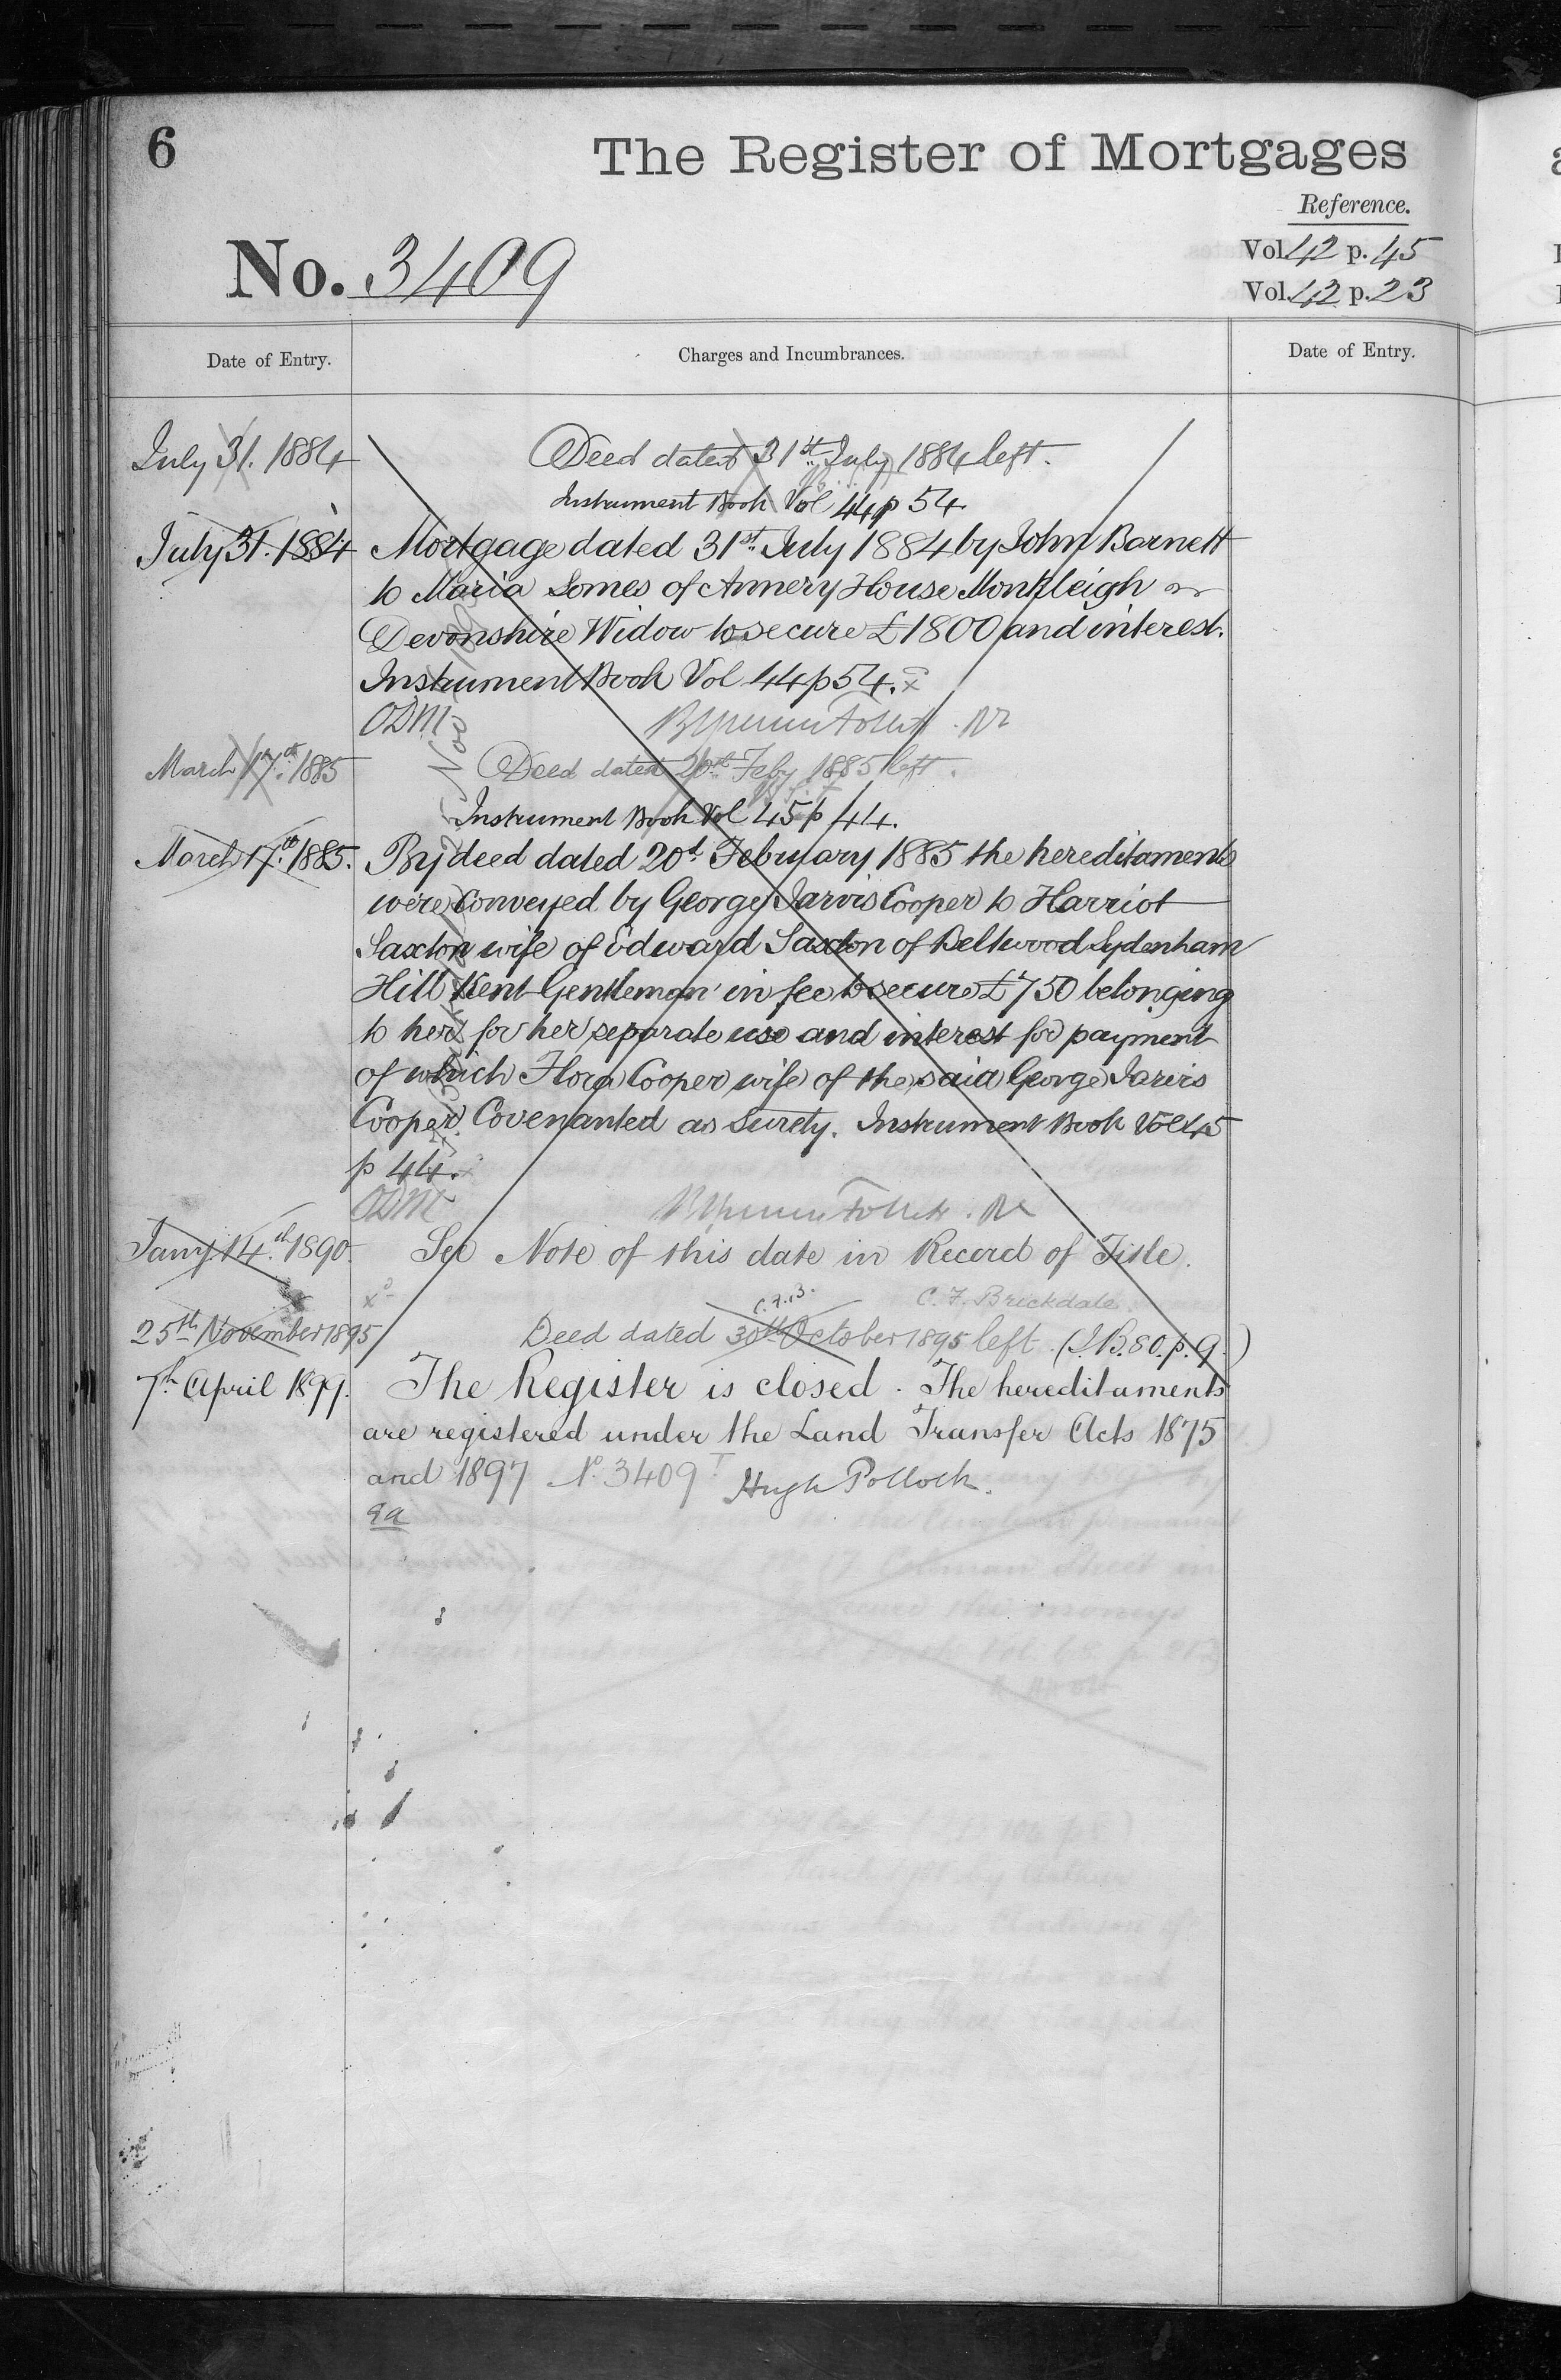 6
The Register of Mortgages
Reference.
No. 3409
Vol. 42 p. 45
Vol. 42 p. 23
Date of Entry.
Charges and Incumbrances.
Date of Entry.
July 31. 1884
Deed dated 31st July 1884 left.
Instrument Book Vol 44 p 54
July 31. 1884
Mortgage dated 31st July 1884 by John Barnett
to Maria Somes of Annery House Monkleigh
Devonshire Widow to secure £1800 and interest.
Instrument Book Vol 44 p 54. x
ODM
March 17th 1885
Deed dated 20th Feby 1885 left.
Instrument Book Vol 45 p 44.
March 17th 1885.
By deed dated 20th February 1885 the hereditaments
were conveyed by George Jarvis Cooper to Harriot
Saxton wife of Edward Saxton of Beltwood Sydenham
Hill Kent Gentleman in fee to secure £750 belonging
to her for her separate use and interest for payment
of which Flora Cooper wife of the said George Jarvis
Cooper Covenanted as Surety. Instrument Book Vol 45
p 44.
ODM
Jany 14th 1890.
See Note of this date in Record of Title.
C. F. Brickdale.
C.F.B.
25th November 1895
Deed dated 30th October 1895 left (I.B. 80. p. 9.)
7th April 1899.
The Register is closed. The hereditaments
are registered under the Land Transfer Acts 1875
and 1897 No. 3409 T Hugh Pollock.